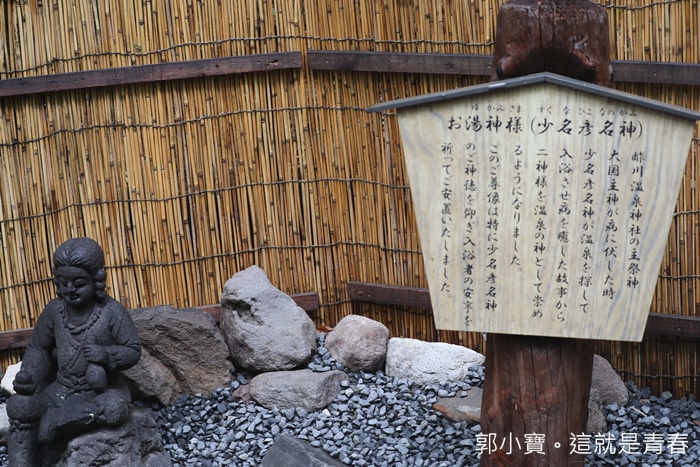 お湯神様(少名彦名神)
ゆかみさま すくなひこなのかみ
酢川温泉神社の主祭神
大国主神が病に伏した時
少名彦名神が温泉を探して
入浴させ病を癒した故事から
二神様を温泉の神として崇め
るようになりました。
このご尊像は特に少名彦名神
のご神徳を仰ぎ入浴者の安寧を
祈ってご安置いたしました。
郭小寶。這就是青春